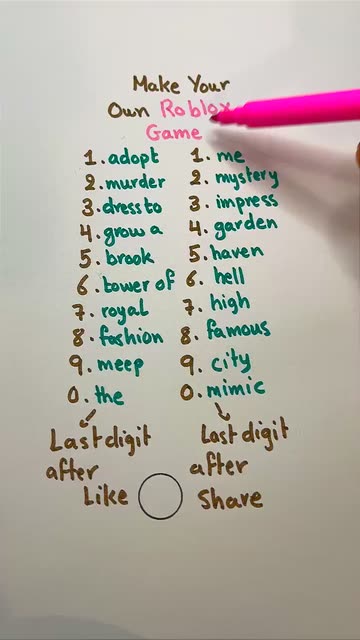 Make Your
Own Roblox
Game
1. adopt 1. me
2. murder 2. mystery
3. dress to 3. impress
4. grow a 4. garden
5. brook 5. haven
6. tower of 6. hell
7. royal 7. high
8. fashion 8. famous
9. meep 9. city
0. the 0. mimic
Last digit Last digit
after after
Like Share